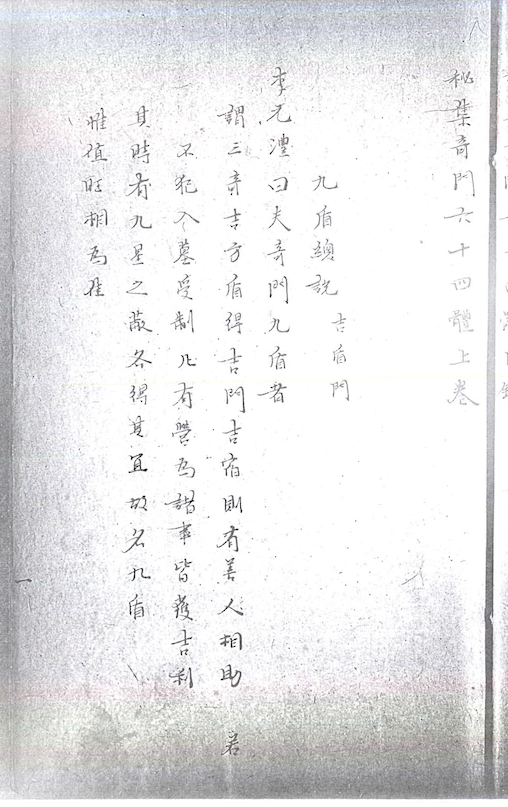 秘集奇門六十四體上卷
九盾總說 吉盾門
李元澧曰夫奇門九盾者
謂三奇吉方盾得吉門吉宿則有善人相助 若
不犯入墓受制凡有營為諸事皆獲吉利
其時有九星之蔽各得其宜故名九盾
惟值旺相為佳
一